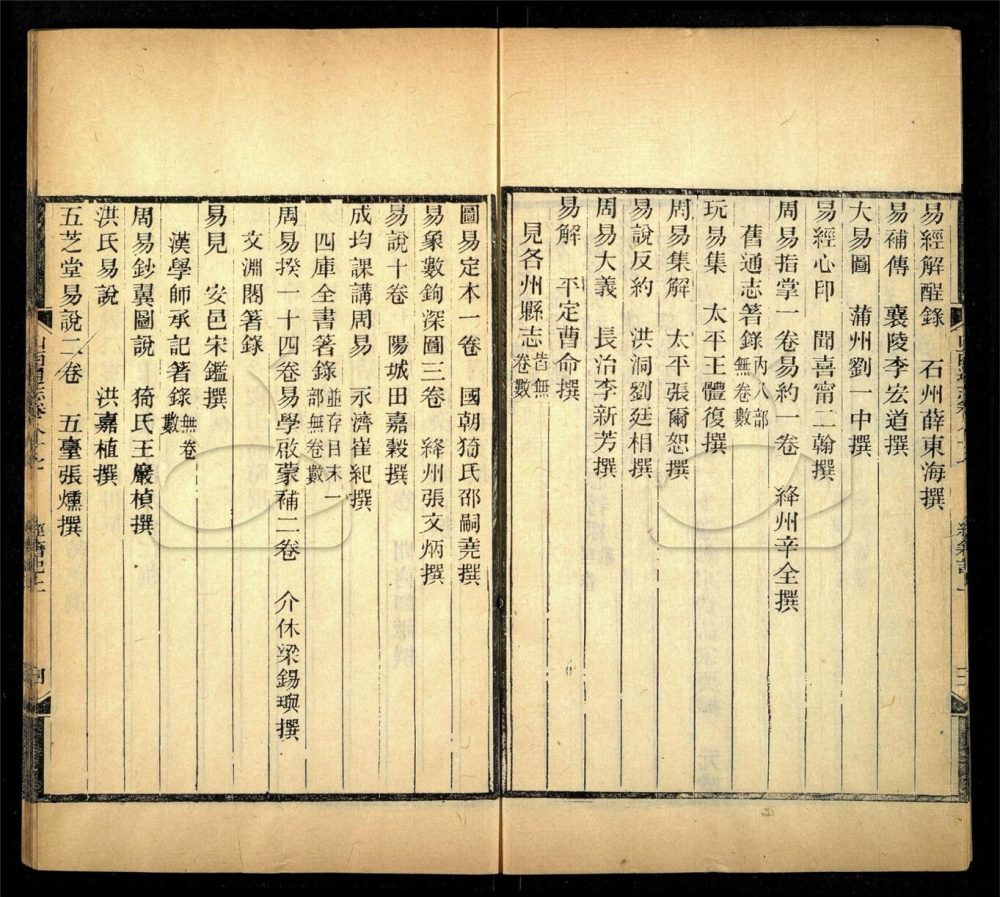 易經解醒錄　石州薛東海撰
易補傳　襄陵李宏道撰
大易圖　蒲州劉一中撰
易經心印　聞喜甯二翰撰
周易指掌一卷易約一卷　絳州辛全撰
舊通志著錄內八部無卷數
玩易集　太平王體復撰
周易集解　太平張爾恕撰
易說反約　洪洞劉廷相撰
周易大義　長治李新芳撰
易解　平定曹命撰
見各州縣志皆無卷數
圖易定本一卷　國朝猗氏邵嗣堯撰
易象數鉤深圖三卷　絳州張文炳撰
易說十卷　陽城田嘉穀撰
成均課講周易　永濟崔紀撰
四庫全書著錄並存目末一部無卷數
周易揆一十四卷易學啟蒙補二卷　介休梁錫璵撰
文淵閣著錄
易見　安邑宋鑑撰
漢學師承記著錄無卷數
周易鈔翼圖說　猗氏王巖楨撰
洪氏易說　洪嘉植撰
五芝堂易說二卷　五臺張燻撰